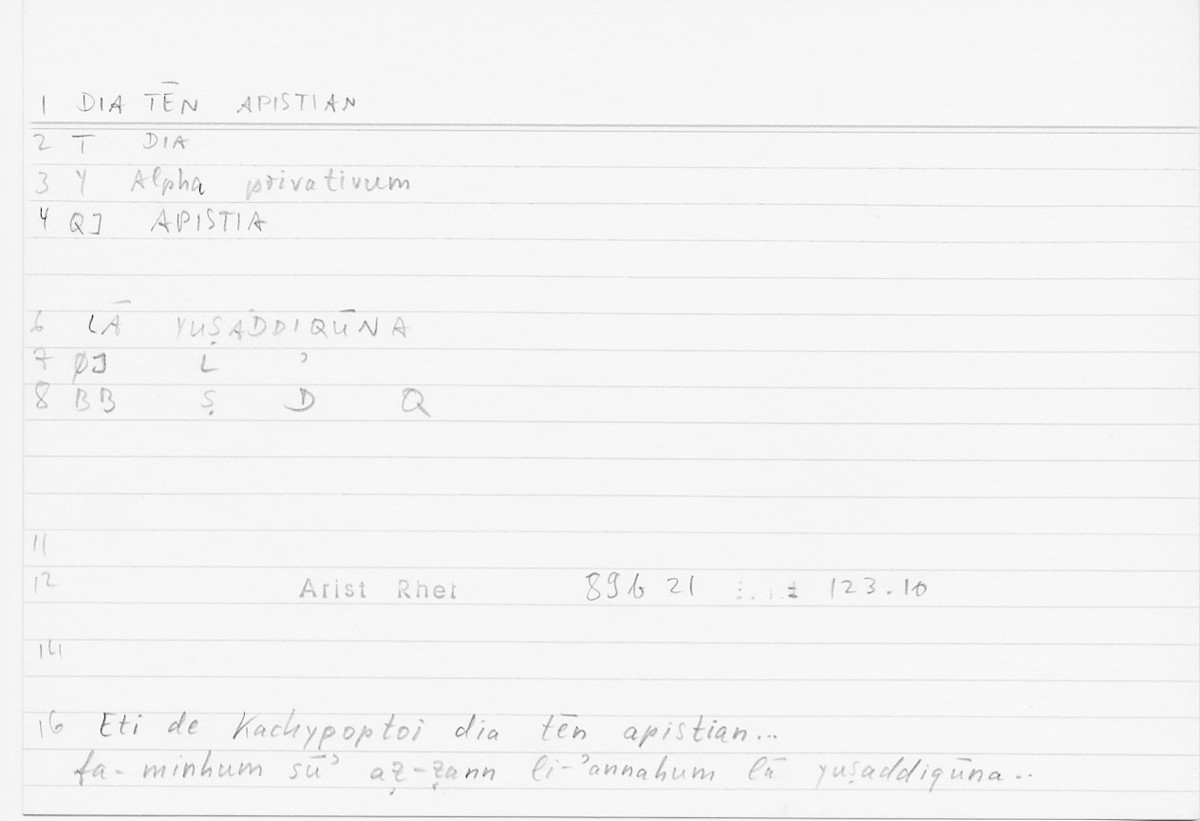 1 DIA TĒN APISTIAN
2 T DIA
3 Y Alpha privativum
4 QJ APISTIA
6 LĀ YUṢADDIQŪNA
7 ØJ L ʾ
8 BB Ṣ D Q
11
12 Arist Rhet 89b 21 123.10
14
16 Eti de kachypoptoi dia tēn apistian...
fa-minhum sūʾ aẓ-ẓann li-ʾannahum lā yuṣaddiqūna..